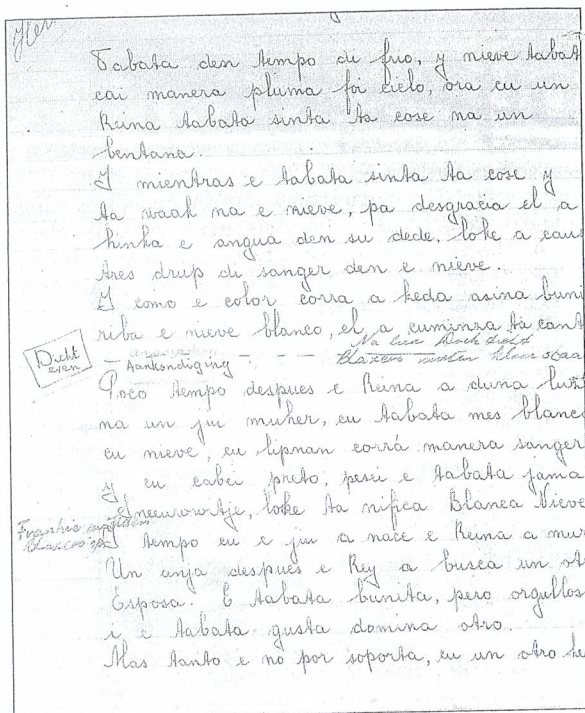 Tabata den tempo di frio, y nieve tabat
cai manera pluma foi cielo, ora cu un
Reina tabata sinta ta cose na un
bentana.
Y mientras e tabata sinta ta cose y
ta waak na e nieve, pa desgracia el a
hinka e angua den su dede, loke a caus
tres drup di sanger den e nieve.
Y como e color corra a keda asina buni
riba e nieve blanco, el a cuminza ta cant
Dicht even
— Aankondiging - - -
Na luce Doek dicht
Blaxcus moeten klaar staa
Poco tempo despues e Reina a duna luz
na un jiu muher, cu tabata mes blanco
cu nieve, cu lipnan corrá manera sanger
y cu cabei preto, pesei e tabata jama
Sneeuwwitje, loke ta nifica Blanca Nieve
Frankie
I tempo cu e jiu a nace e Reina a mur
Un anja despues e Rey a busca un ot
Esposa. E tabata bunita, pero orgullos
i e tabata gusta domina otro.
Mas tanto e no por soporta, cu un otro he